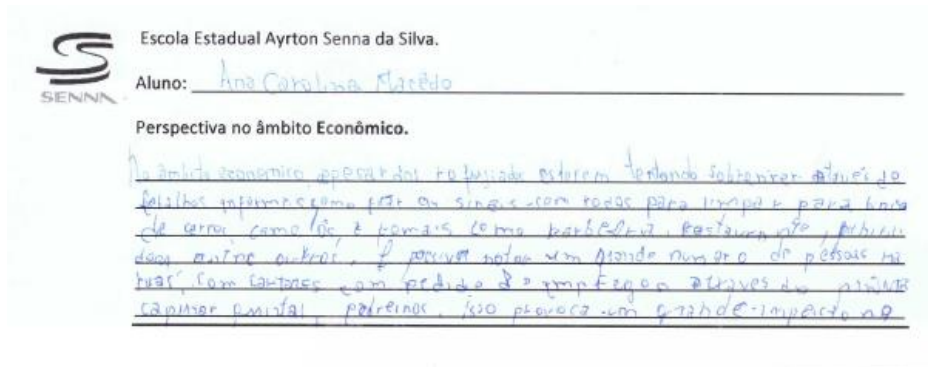 Escola Estadual Ayrton Senna da Silva.
SENNA
Aluno: Ana Carolina Macêdo
Perspectiva no âmbito Econômico.
No âmbito economico, apesar dos refugiado estarem tentando sobreviver através de
informais como ficar em sinais com rodos para limpar para brisa
de carros, e como barbearia, restaurante,
entre outros, É possivel notar um grande numero de pessoas na
ruas, com cartazes com pedido de empregos através de
capinar quintal, pedreiros, isso provoca um grande impacto na